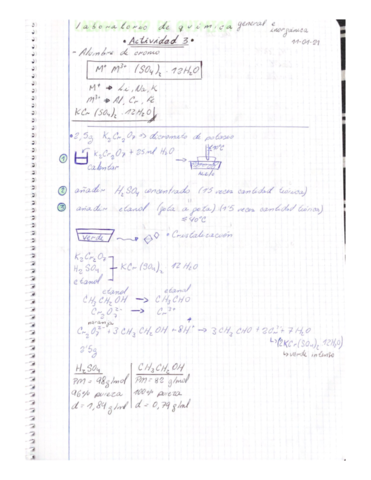 Laboratorio de química general e inorgánica
• Actividad 3 •
- Alumbre de cromo
M⁺ M³⁺ (SO₄)₂ · 12H₂O
M⁺ → Na, K
M³⁺ → Al, Cr, Fe
KCr(SO₄)₂ · 12H₂O
• 2,5g K₂Cr₂O₇ → dicromato de potasio
① K₂Cr₂O₇ + 25ml H₂O
calentar
hielo
② añadir H₂SO₄ concentrado (1'5 veces cantidad teórica)
③ añadir etanol (gota a gota) (1'5 veces cantidad teórica)
40ºC
verde → + Cristalización
K₂Cr₂O₇
H₂SO₄ KCr(SO₄)₂ 12H₂O
etanol
etanol etanal
CH₃CH₂OH → CH₃CHO
Cr₂O₇²⁻ → Cr³⁺
naranja
Cr₂O₇²⁻ + 3CH₃CH₂OH + 8H⁺ → 3CH₃CHO + 2Cr³⁺ 7H₂O
2'5g
verde intenso
H₂SO₄ CH₃CH₂OH
PM = 98g/mol
96% pureza 100% pureza
d = 1,84 g/ml d = 0,79 g/ml